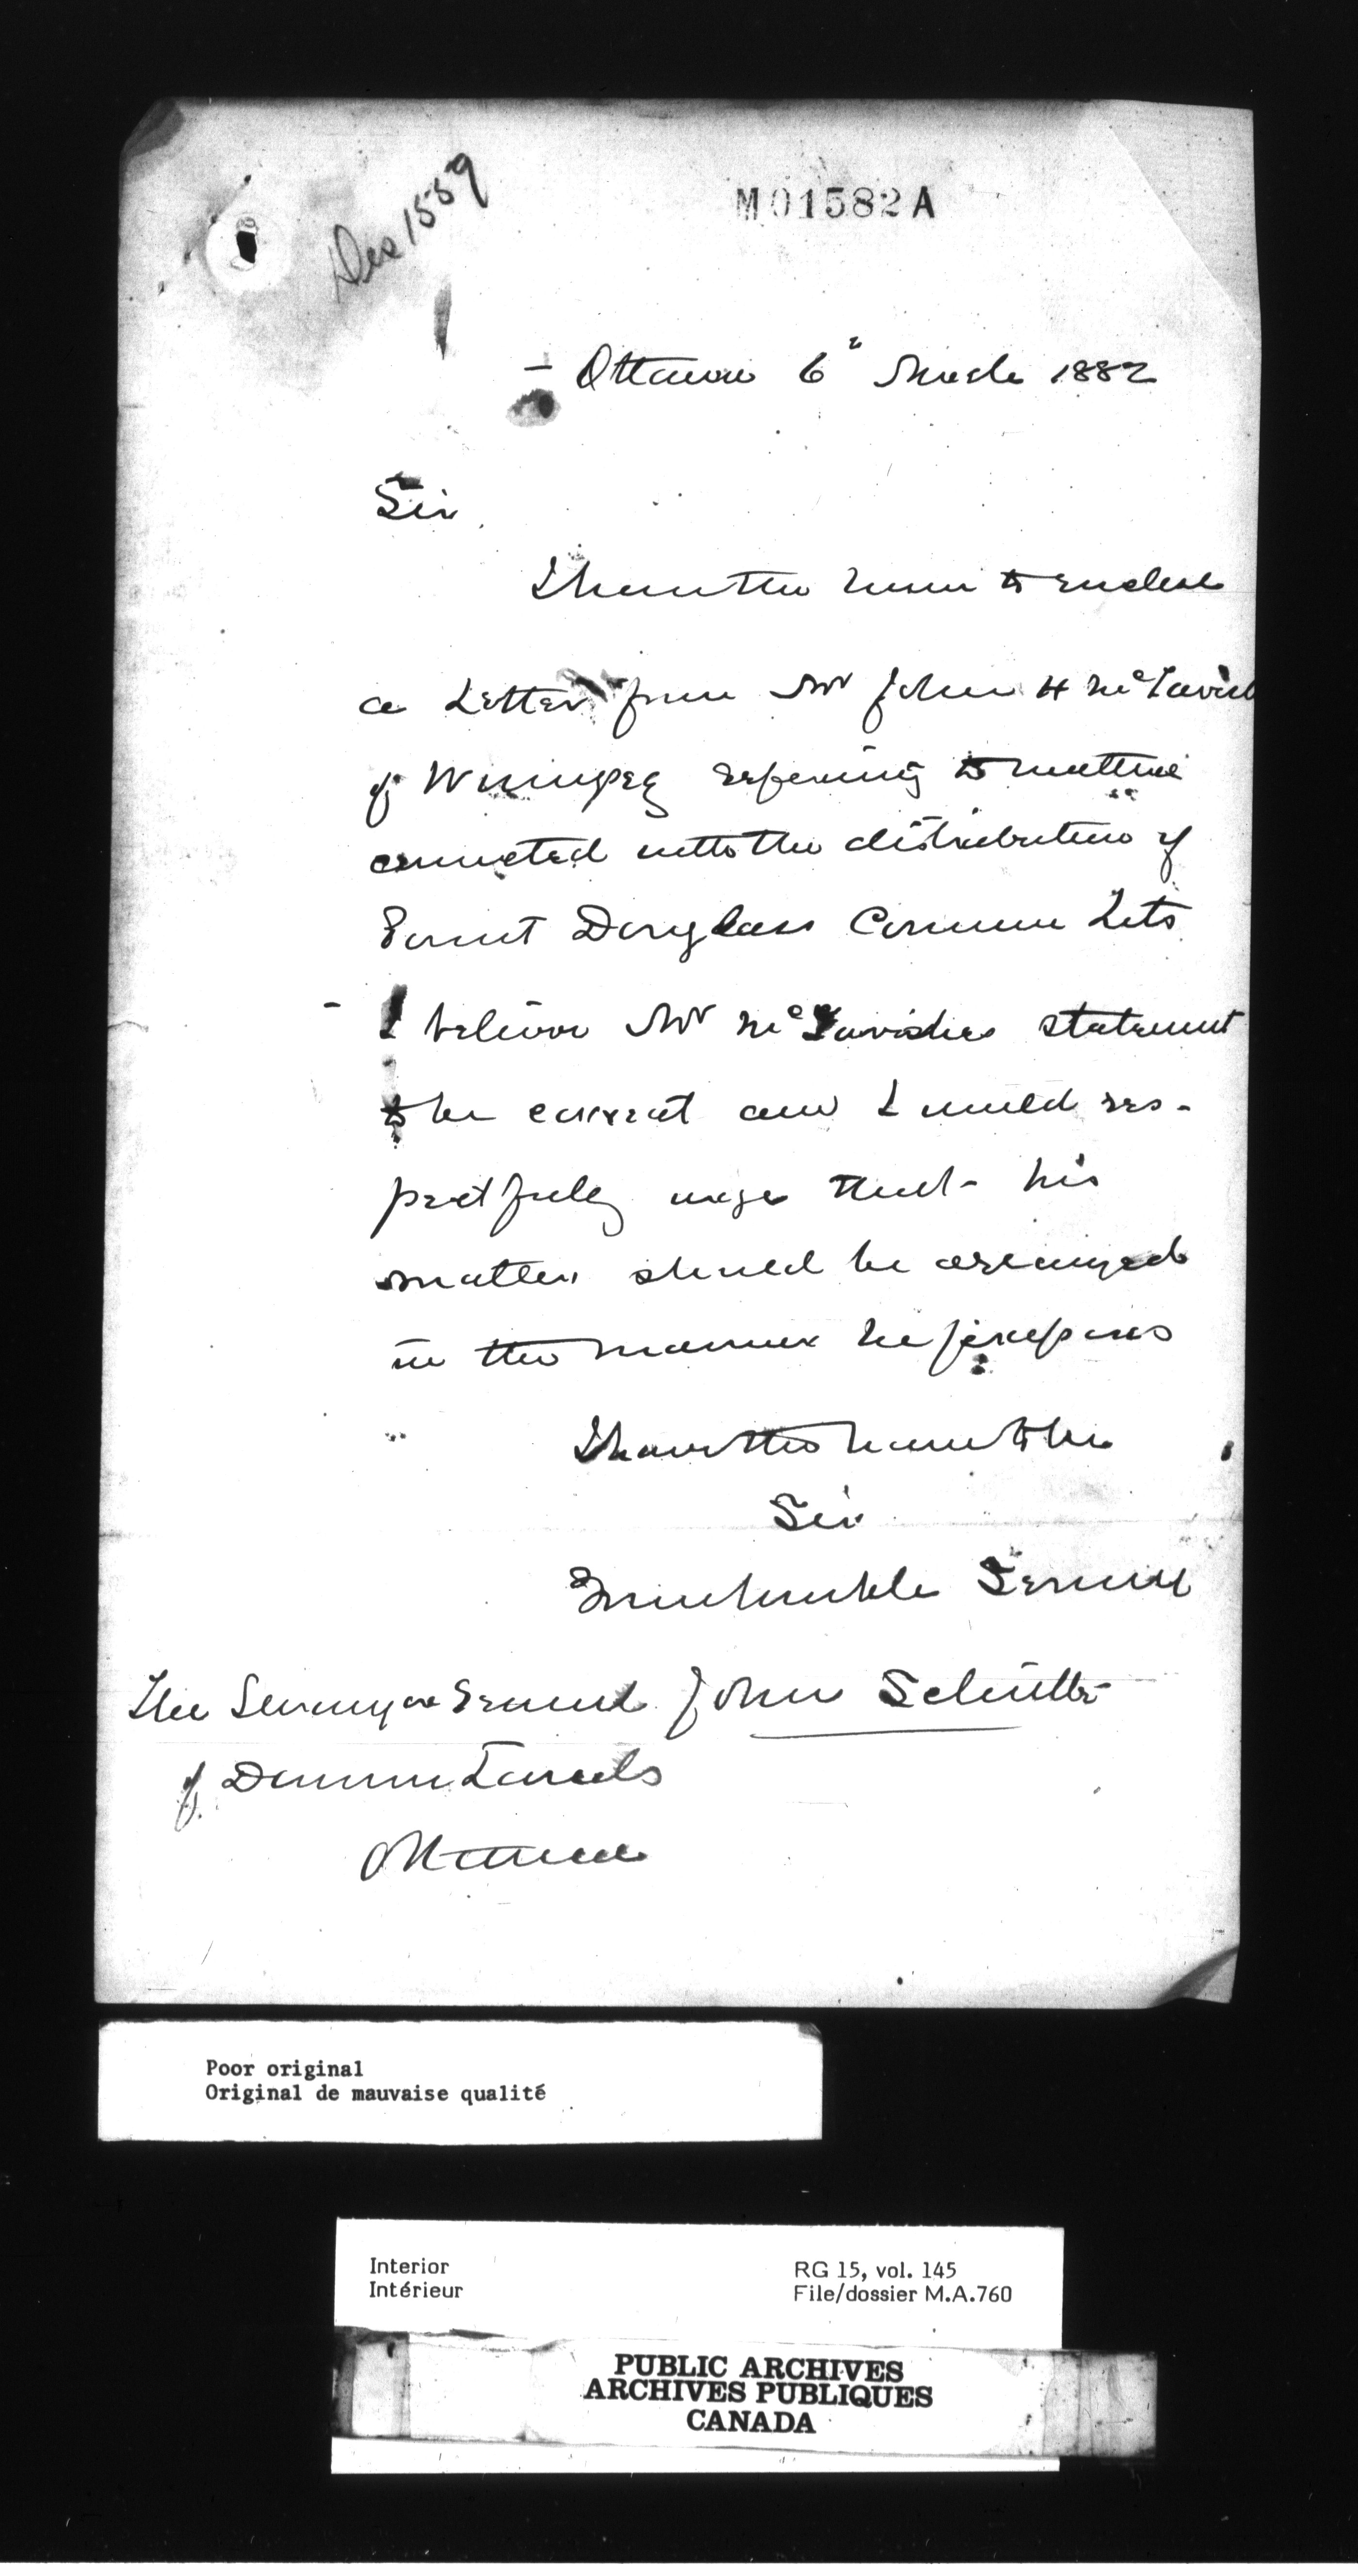 Dec 1559
M01582A
Ottawa 6" March 1882
Sir
I have the honor to enclose
a Letter from Mr John H McTavish
of Winnipeg referring to matters
connected with the distribution of
Point Douglass Common Lots
I believe Mr McTavishes statement
to be correct and I would res-
pectfully urge that his
matters should be arranged
in the manner he proposes
I have the honor to be
Sir
Your humble Servant
John Schultz
The Surveyor General
of Dominion Lands
Ottawa
Poor original
Original de mauvaise qualité
Interior
Intérieur
RG 15, vol. 145
File/dossier M.A.760
PUBLIC ARCHIVES
ARCHIVES PUBLIQUES
CANADA